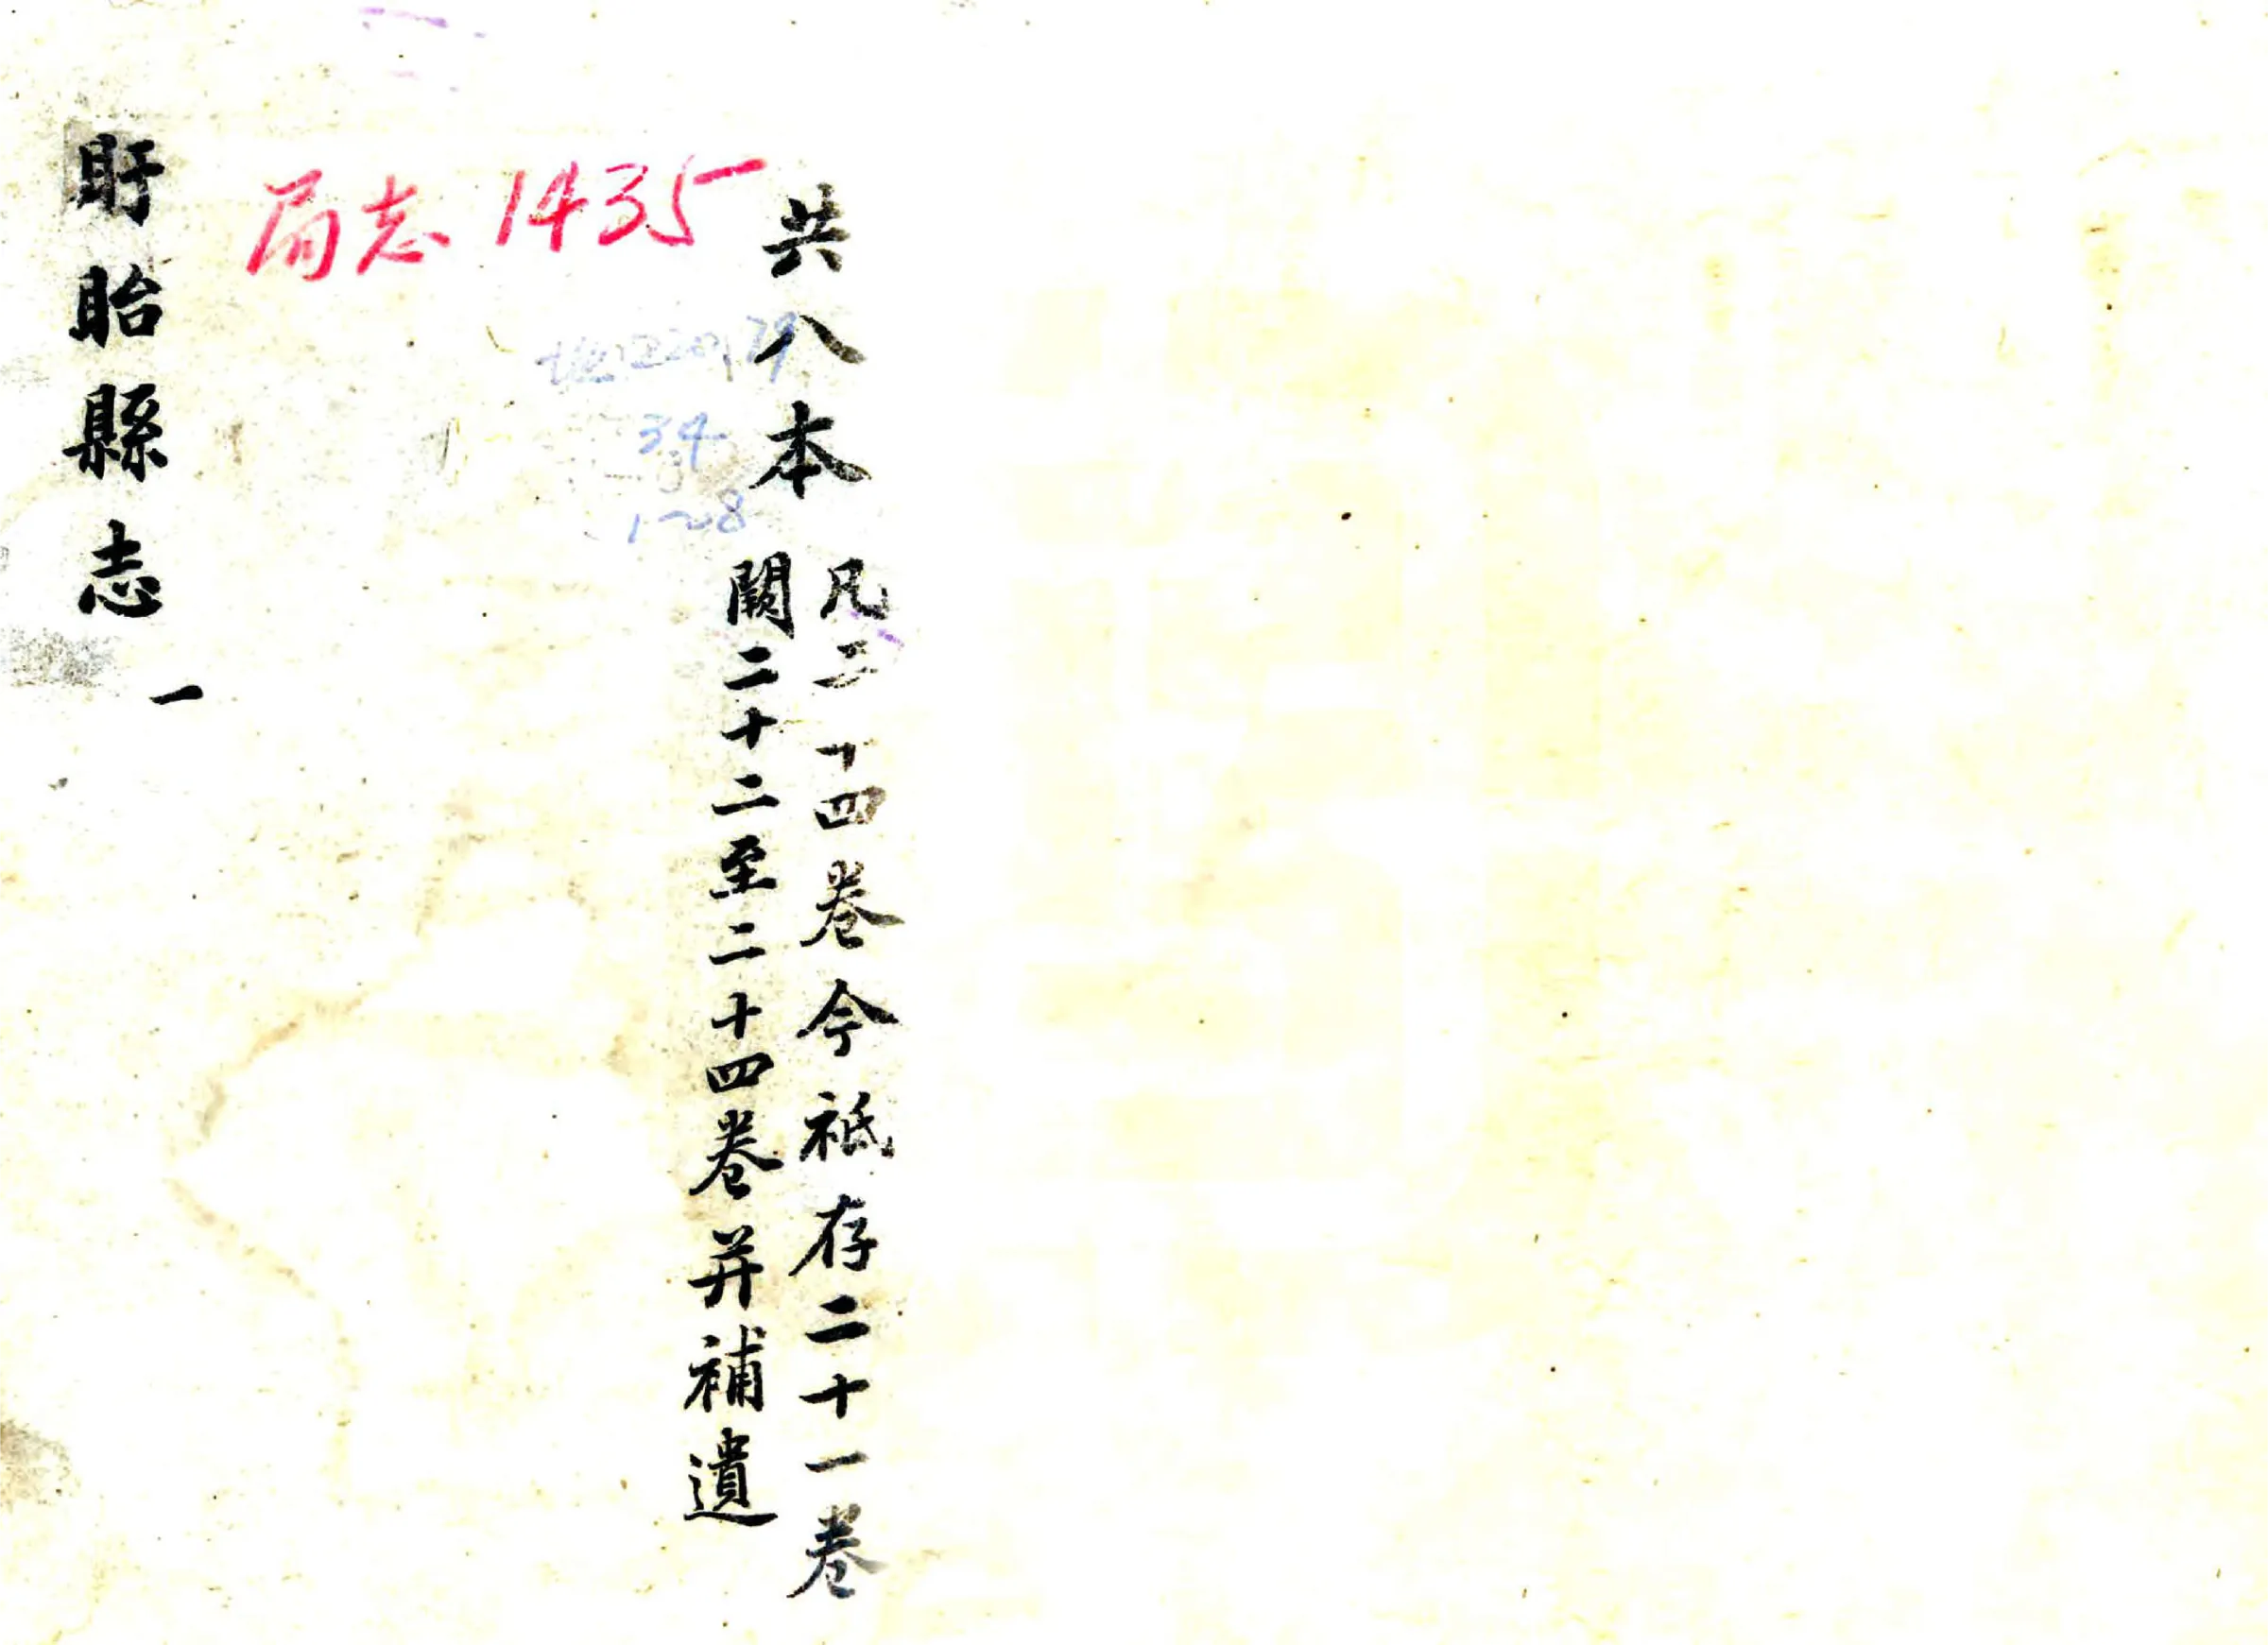 共八本
凡二十四卷今祗存二十一卷
闕二十二至二十四卷并補遺
局志 1435
34
1~8
盱眙縣志
一